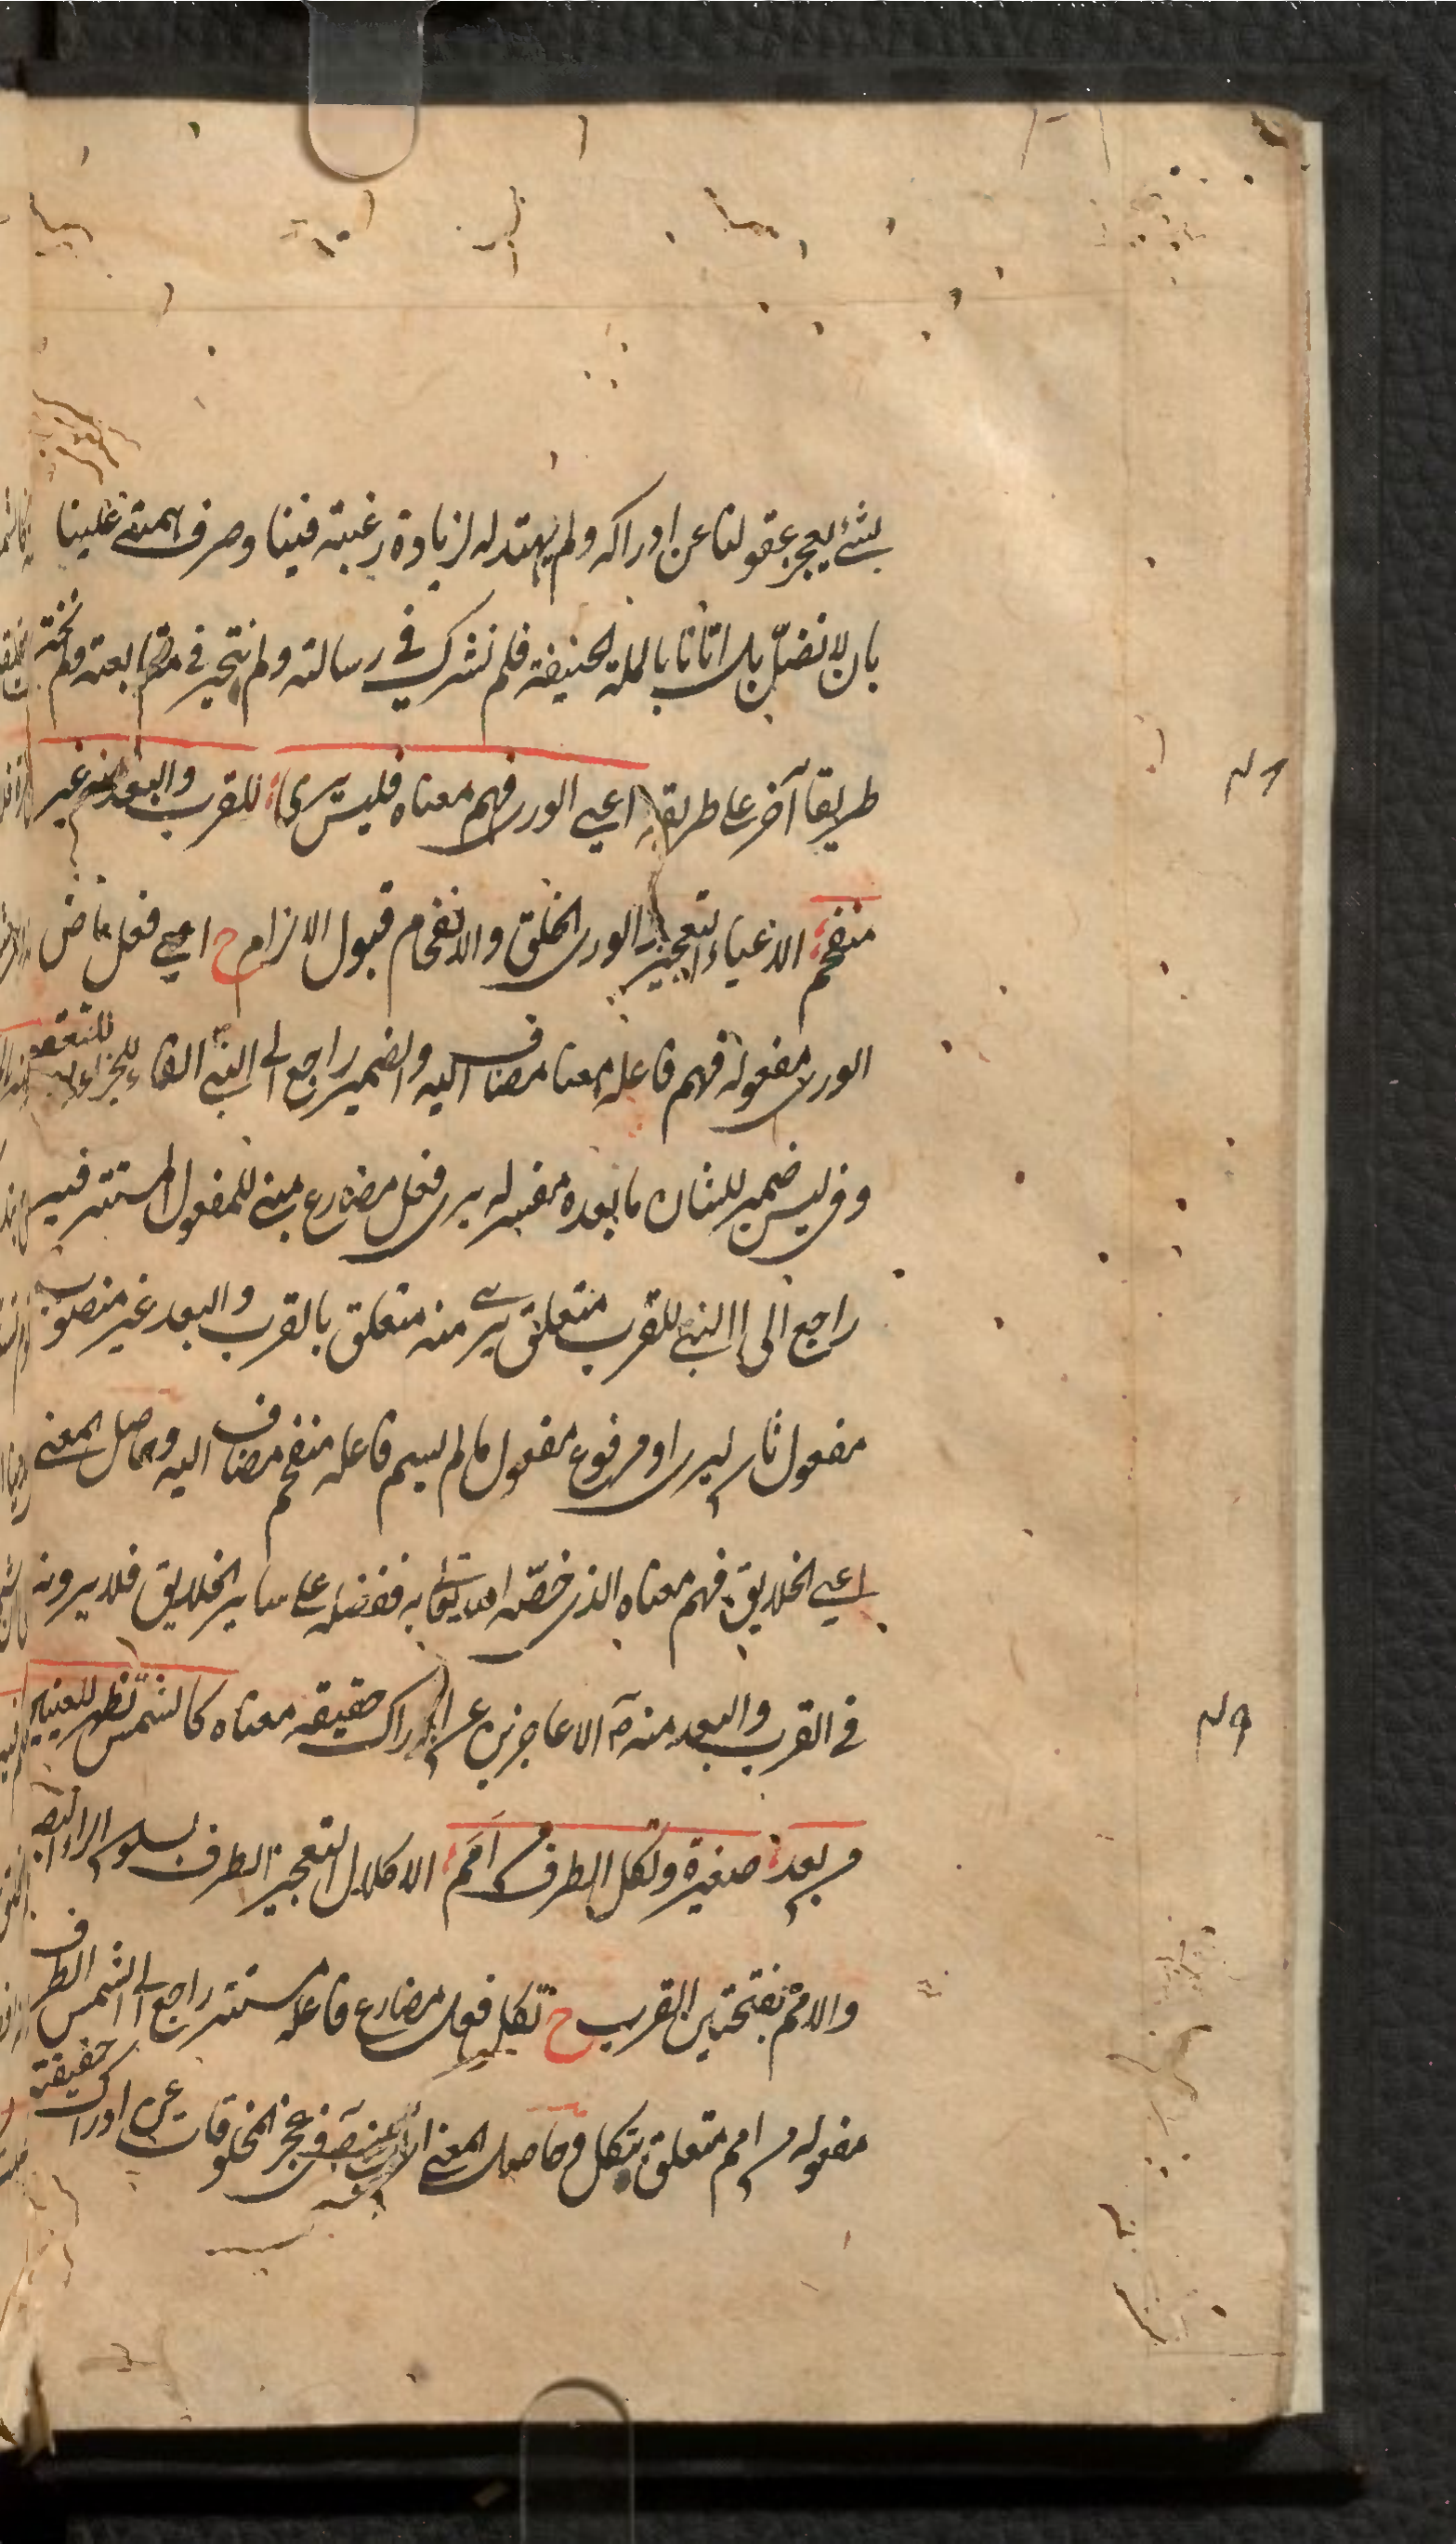 بشئ يعجز عقولنا عن ادراكه ولم يهتد له لزيادة رغبته فينا وصرف همته علينا
بان لا نضل بل اتانا بالملة الحنيفة فلم نشرك في رسالته ولم نتحير في متابعته ولم نختر
طريقا آخر على طريقه اعيى الورى فهم معناه فليس يرى للقرب والبعد منه غير
منفحم الاعياء التعجيز الورى الخلق والانفحام قبول الالزام ح اعيى فعل ماض
الورى مفعوله فهم فاعله معناه مضاف اليه والضمير راجع الى النبي الفاء للجزاء للتعقيب
وفي ليس ضمير للشان ما بعده مفسر له يرى فعل مضارع مبني للمفعول المستتر فيه
راجع الى النبي للقرب متعلق يرى منه متعلق بالقرب والبعد غير منصوب
مفعول ثان ليرى او مرفوع مفعول ما لم يسم فاعله منفحم مضاف اليه وحاصل المعنى
اعيى الخلايق فهم معناه الذي خصه الله تعالى به ففضله على ساير الخلايق فلا يرونه
في القرب والبعد منه الا عاجزين عن ادراك حقيقة معناه كالشمس تظهر للعينين
من بعد صغيرة وتكل الطرف من امم الاكلال التعجيز الطرف بسكون الراء البصر
والامم بفتحتين القرب ح تكل فعل مضارع فاعله مستتر راجع الى الشمس الطرف
مفعوله من امم متعلق بتكل وحاصل المعنى في عجز المخلوقات عن ادراك حقيقة